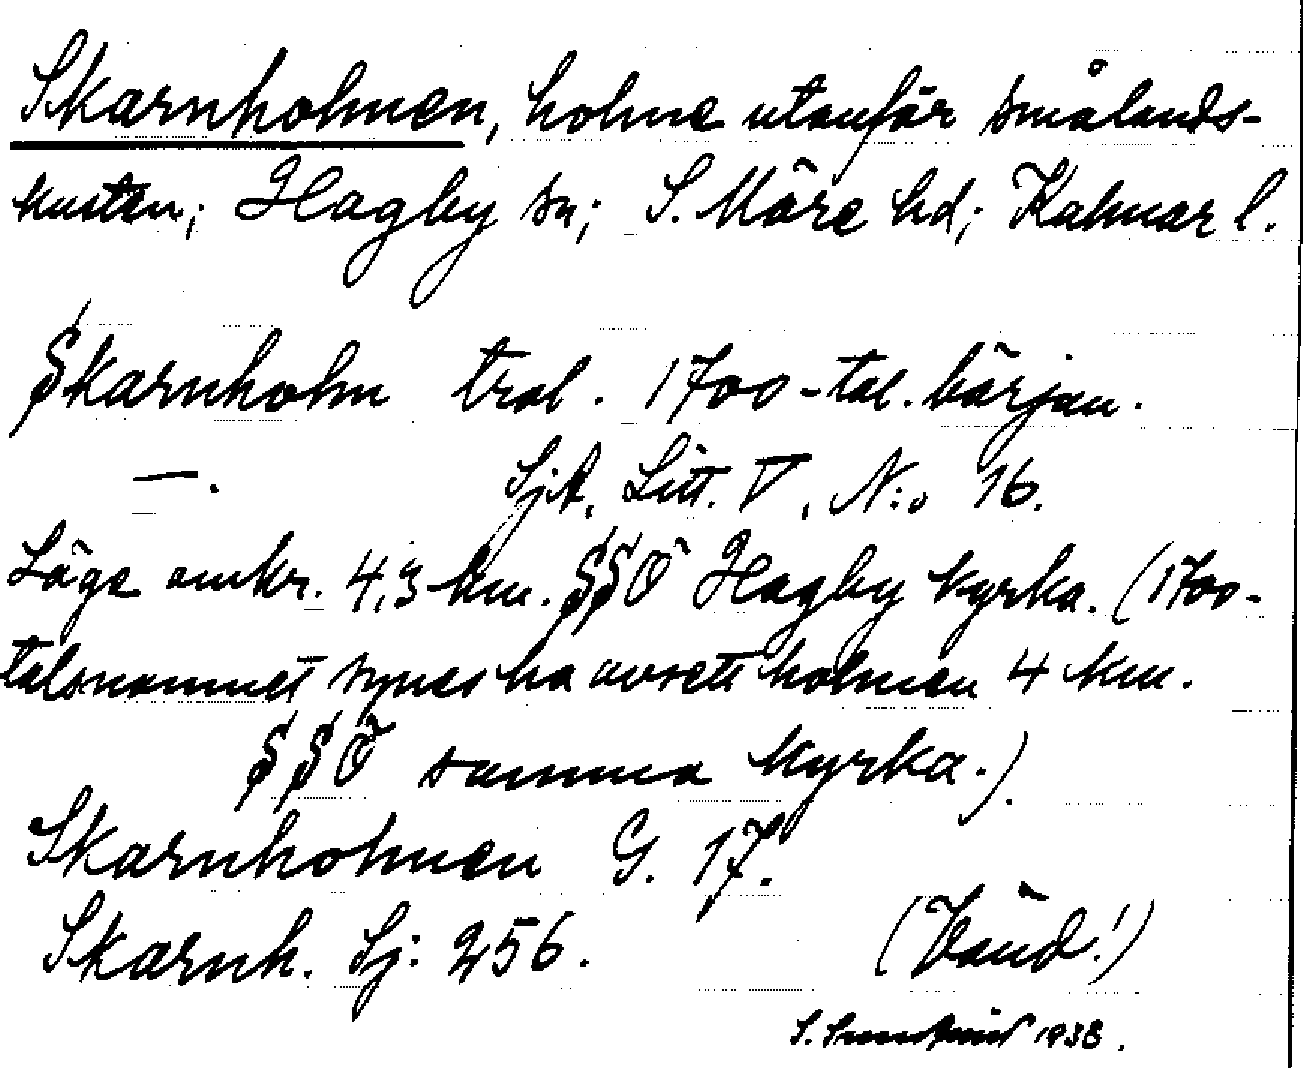 Skarnholmen, holme utanför smålands-
kusten; Hagby sn; S. Möre hd; Kalmar l.
Skarnholm trol. 1700-tal. början.
—. SjA, Litt. V, N:o 16.
Läge omkr. 4,3 km. SSÖ Hagby kyrka. (1700-
talsnamnet synes ha avsett holmen 4 km.
SSÖ samma kyrka.)
Skarnholmen G. 17.
Skarnh. Sj: 256.
(Vänd!)
S. 1938.